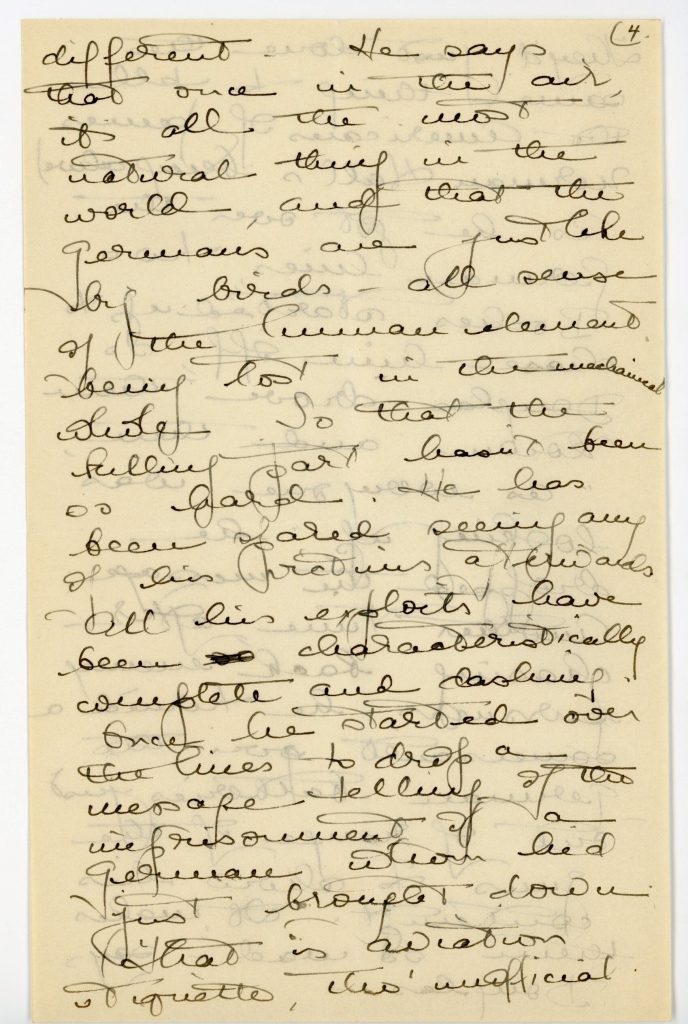 (4.
different - He says
that once in the air,
it's all the most
natural thing in the
world, and that the
Germans are just like
big birds - all sense
of the human element
being lost in the mechanical
So that the
killing part hasn't been
so hard. He has
been spared seeing any
of his victims afterwards
All his exploits have
been characteristically
complete and dashing.
Once he started over
the lines to drop a
message telling of the
imprisonment of a
German whom he'd
just brought down
(that is aviation
etiquette, tho' unofficial